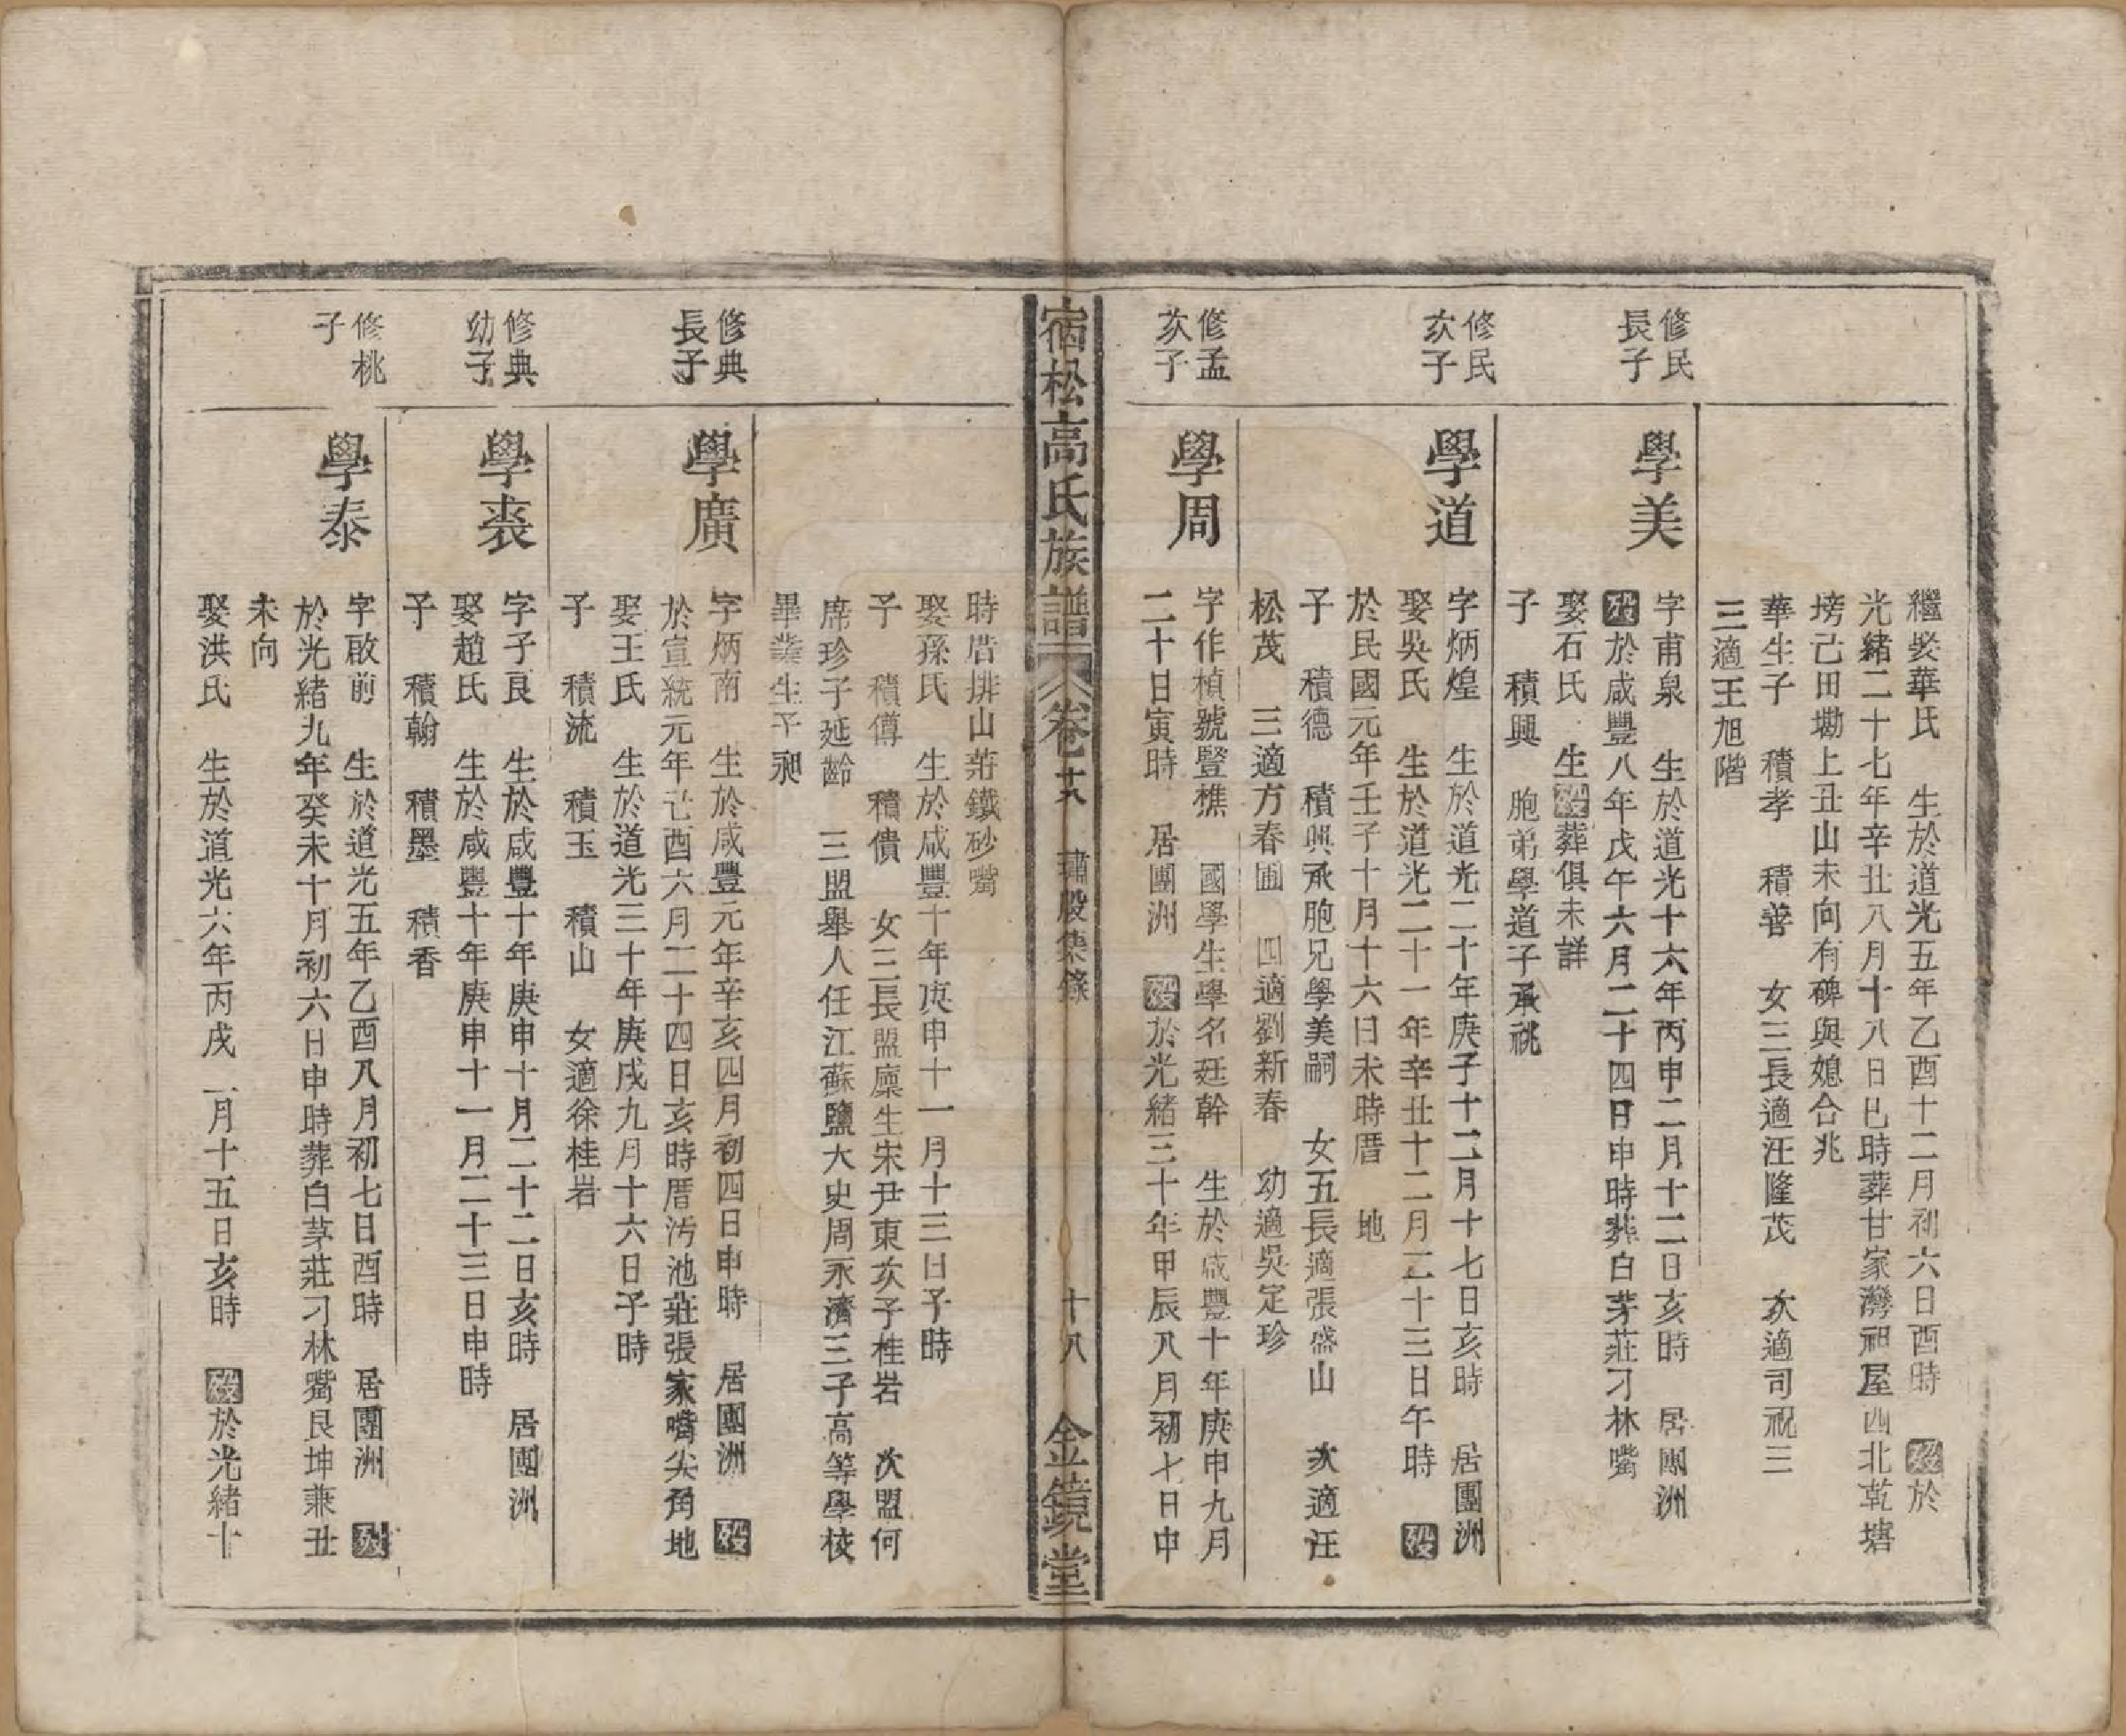 繼娶華氏　生於道光五年乙酉十二月初六日酉時　歿於
光緒二十七年辛丑八月十八日巳時葬甘家灣祖屋西北乾塘
塝己田墈上丑山未向有碑與媳合兆
華生子　積孝　積善　女三長適汪隆茂　次適司祝三
三適王旭階
修民
長子
學美
字甫泉　生於道光十六年丙申二月十二日亥時　居團洲
歿於咸豐八年戊午六月二十四日申時葬白茅莊刁林嘴
娶石氏　生歿葬俱未詳
子　積興　胞弟學道子承祧
修民
次子
學道
字炳煌　生於道光二十年庚子十二月十七日亥時　居團洲
娶吳氏　生於道光二十一年辛丑十二月二十三日午時　歿
於民國元年壬子十月十六日未時厝　地
子　積德　積興承胞兄學美嗣　女五長適張盛山　次適汪
松茂　三適方春圃　四適劉新春　幼適吳定珍
修孟
次子
學周
字作楨號豎樵　國學生學名廷幹　生於咸豐十年庚申九月
二十日寅時　居團洲　歿於光緒三十年甲辰八月初七日申
宿松高氏族譜　卷十八　璛殷集錄　十八　金鏡堂
時厝排山莊鐵砂嘴
娶孫氏　生於咸豐十年庚申十一月十三日子時
子　積傅　積僓　女三長盟廩生宋尹東次子桂岩　次盟何
席珍子延齡　三盟舉人任江蘇鹽大史周永濟三子高等學校
畢業生平昶
修典
長子
學廣
字炳南　生於咸豐元年辛亥四月初四日申時　居團洲　歿
於宣統元年己酉六月二十四日亥時厝污池莊張家嘴尖角地
娶王氏　生於道光三十年庚戌九月十六日子時
子　積流　積玉　積山　女適徐桂岩
修典
幼子
學裘
字子良　生於咸豐十年庚申十月二十二日亥時　居團洲
娶趙氏　生於咸豐十年庚申十一月二十三日申時
子　積翰　積墨　積香
修桃
子
學泰
字啟前　生於道光五年乙酉八月初七日酉時　居團洲　歿
於光緒九年癸未十月初六日申時葬白茅莊刁林嘴艮坤兼丑
未向
娶洪氏　生於道光六年丙戌一月十五日亥時　歿於光緒十